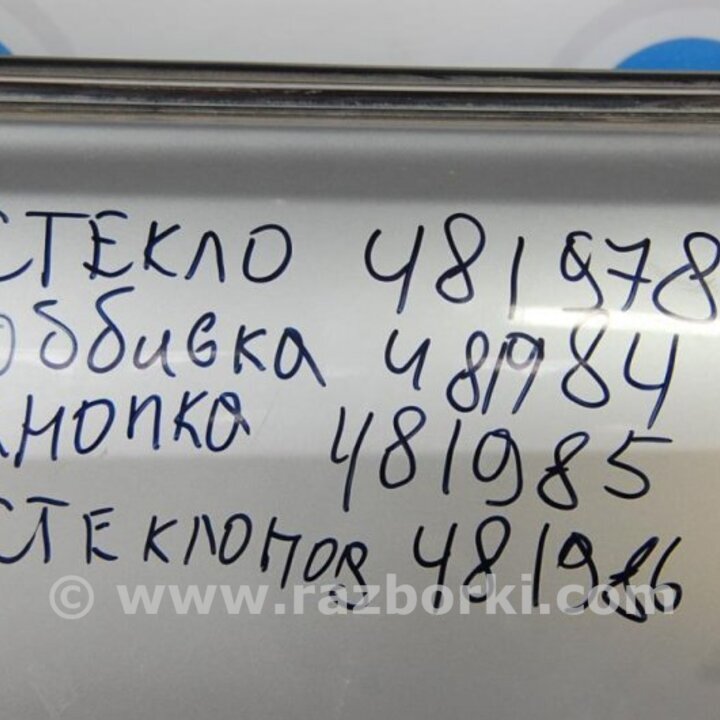 СТЕКЛО 481978
ОББИВКА 481984
КНОПКА 481985
СТЕКЛОПОД 481986
© www.razborki.com